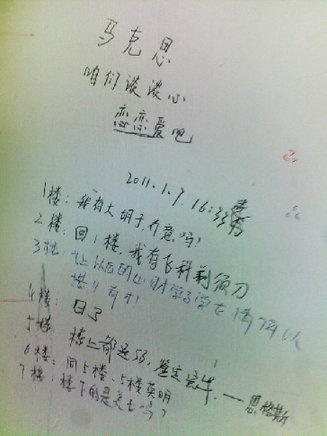 马克思
咱们谈谈心
恋恋爱吧
2011.1.9. 16:33
1楼：我有大胡子，介意吗？
2楼：回1楼，我有飞科剃须刀
3楼：
4楼：日了
5楼：楼上都是SB，鉴定完毕。——恩格斯
6楼：同5楼，5楼英明
7楼：楼下的是美女吗？